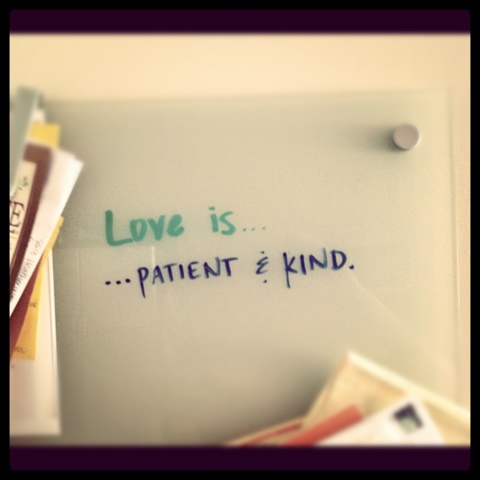 Love is...
...PATIENT & KIND.